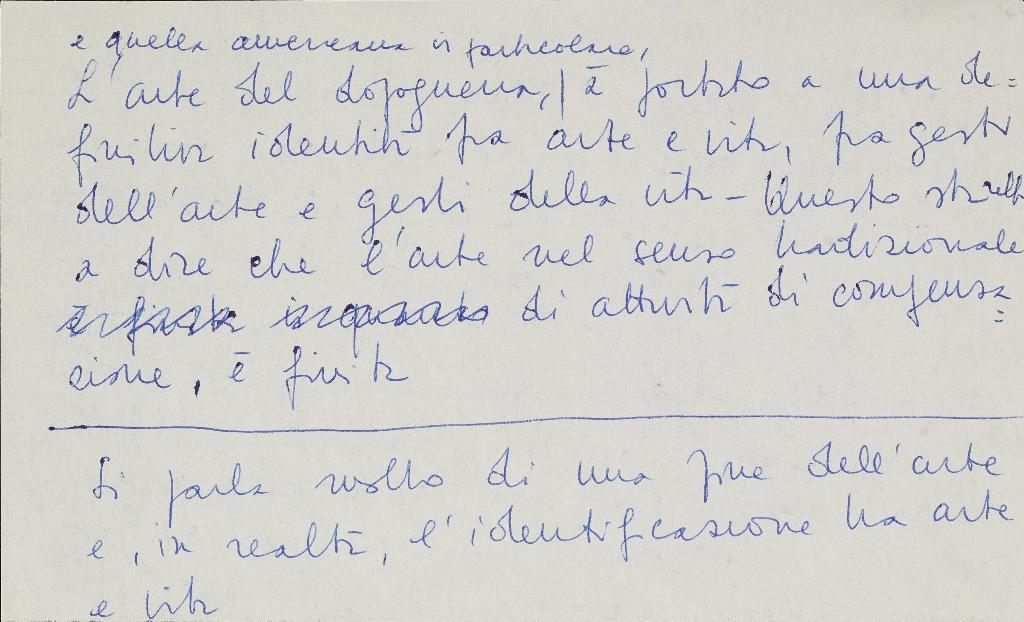 e quella americana in particolare,
L'arte del dopoguerra, / à portato a una de=
finitiva identità fra arte e vita, fra gesti
dell'arte e gesti della vita - Questo
a dire che l'arte nel senso tradizionale
di attività di compensa=
zione, è finita
Si parla molto di una fine dell'arte
e, in realtà, l'identificazione tra arte
e vita